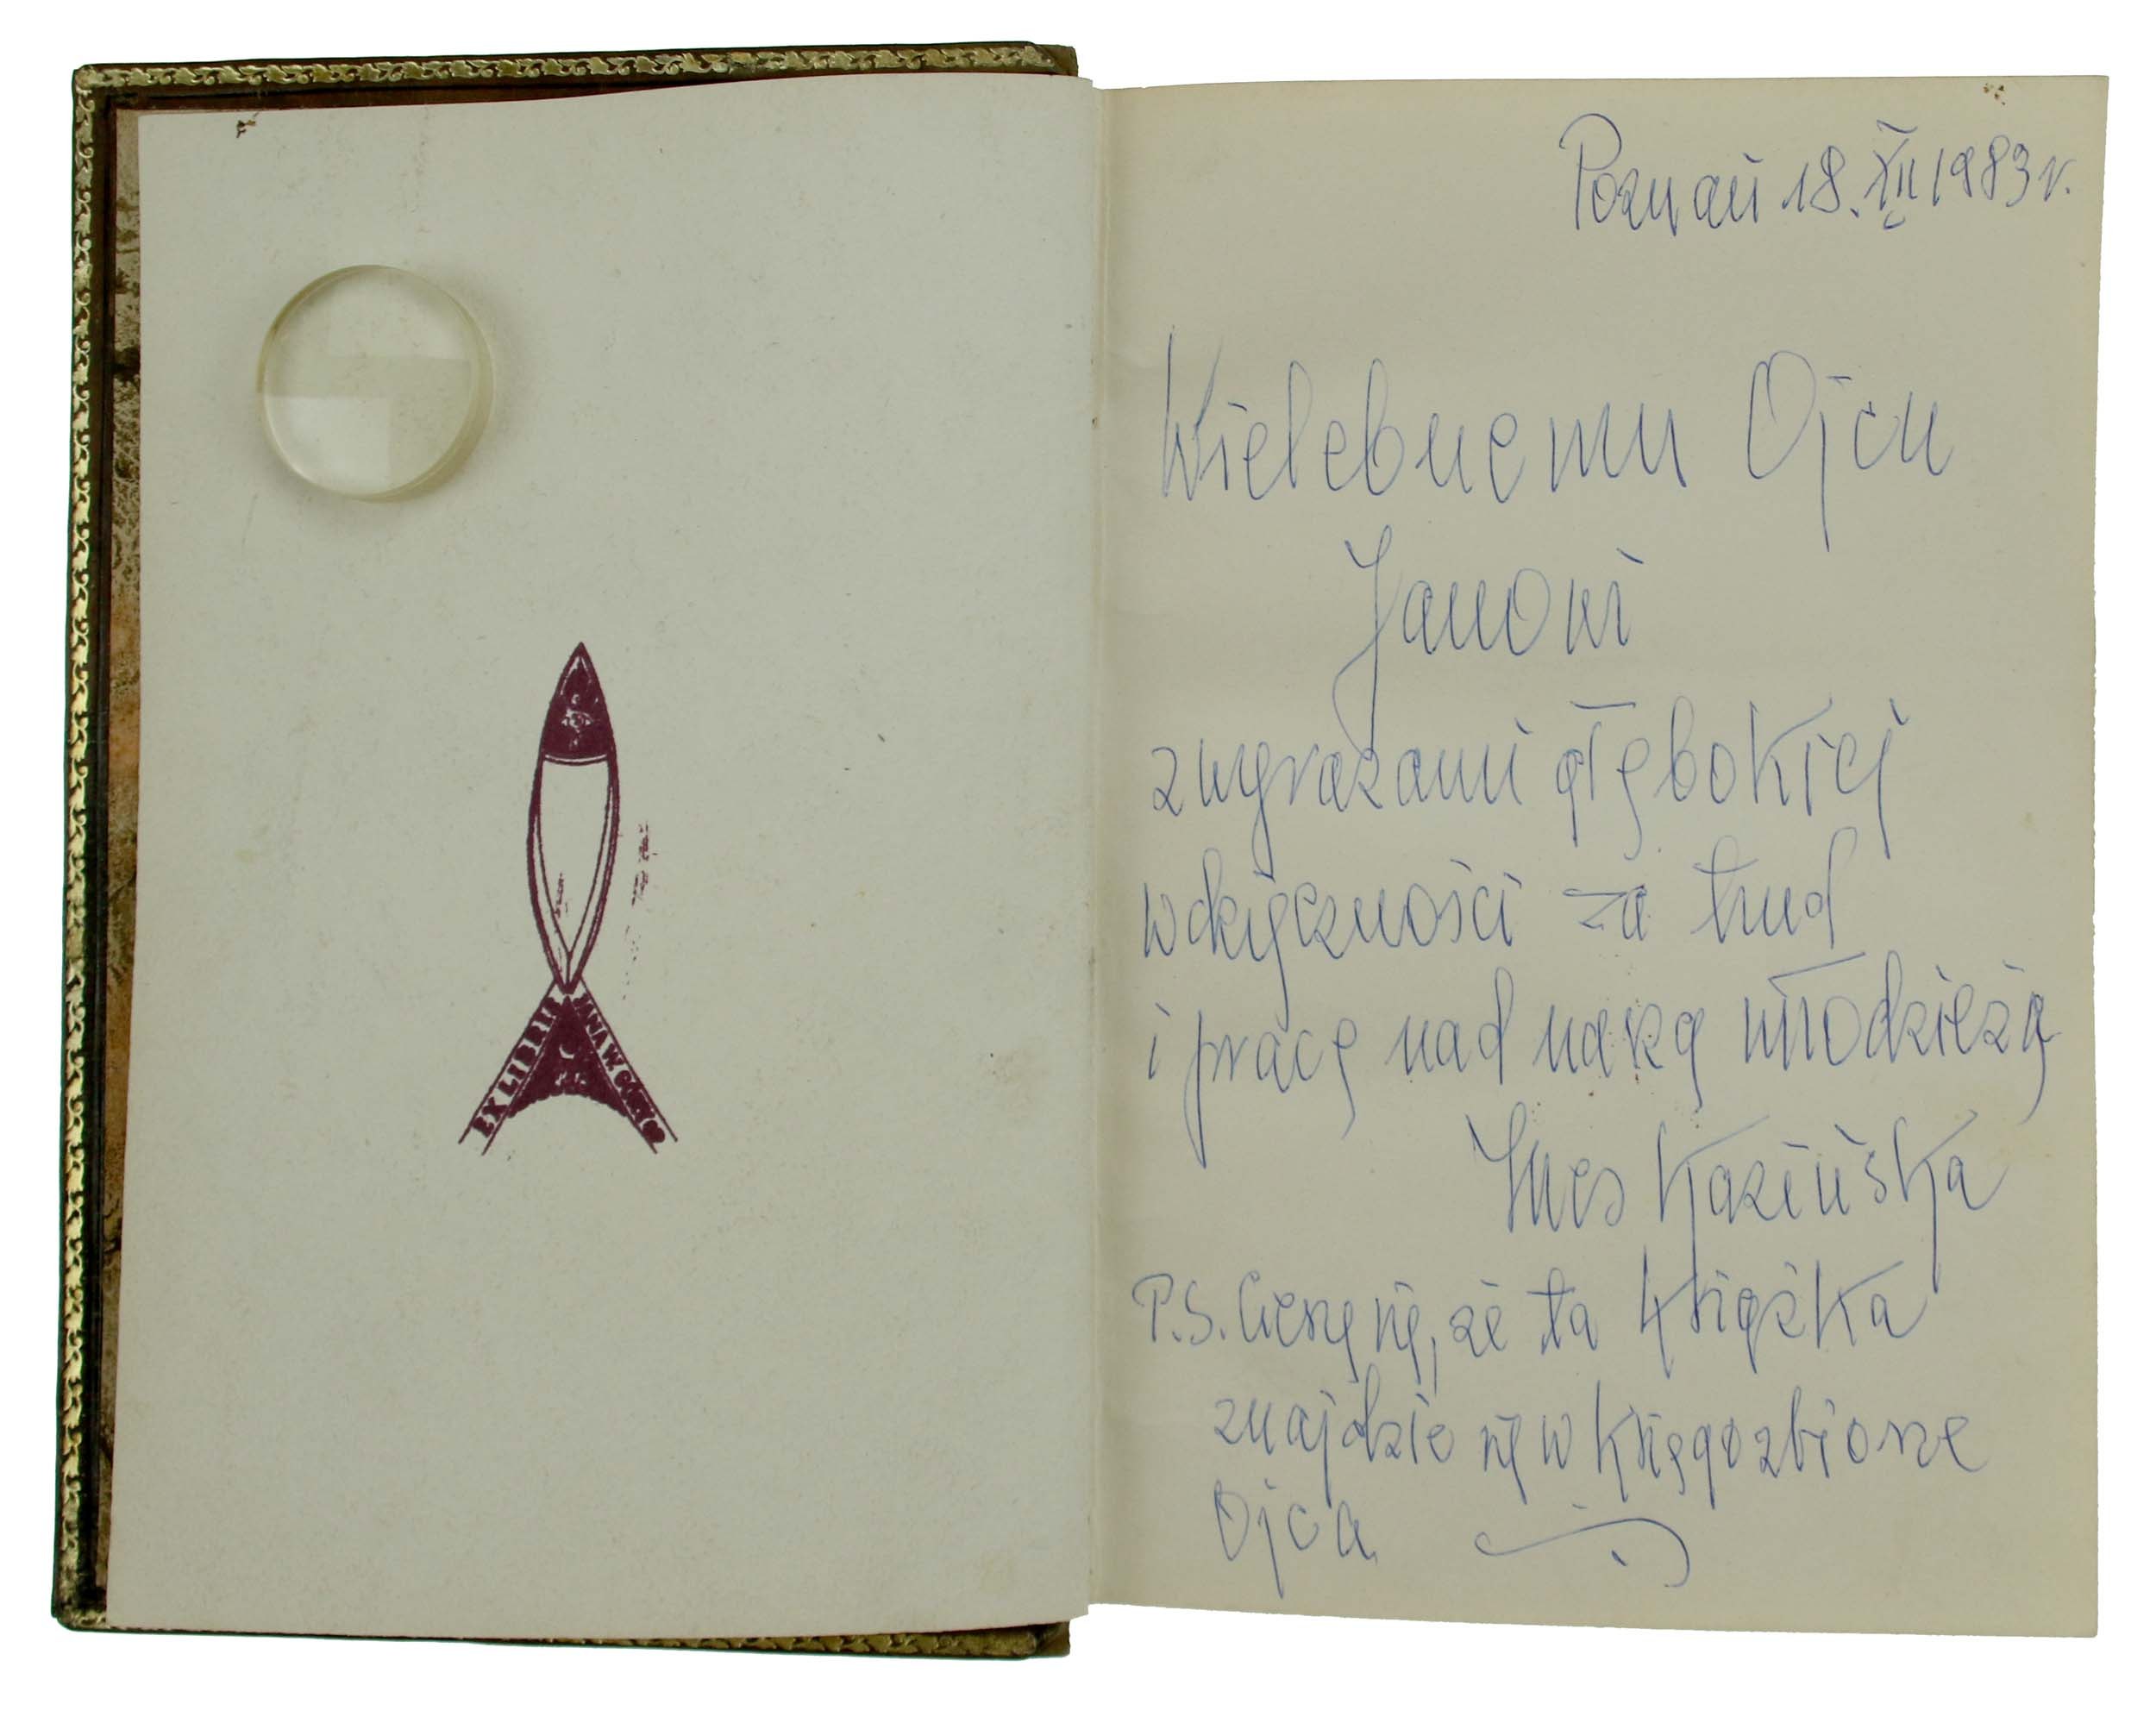 EX LIBRIS
JANA W. GÓRY OP
Poznań 18.XII 1983 r.
Wielebnemu Ojcu
Janowi
z wyrazami głębokiej
wdzięczności za trud
i pracę nad naszą młodzieżą
Ines
P.S. Cieszę się, że ta książka
znajdzie się w księgozbiorze
Ojca